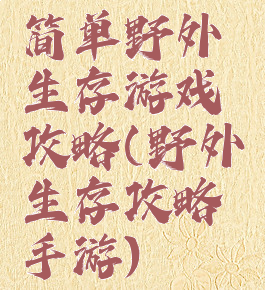 简单野外
生存游戏
攻略(野外
生存攻略
手游)